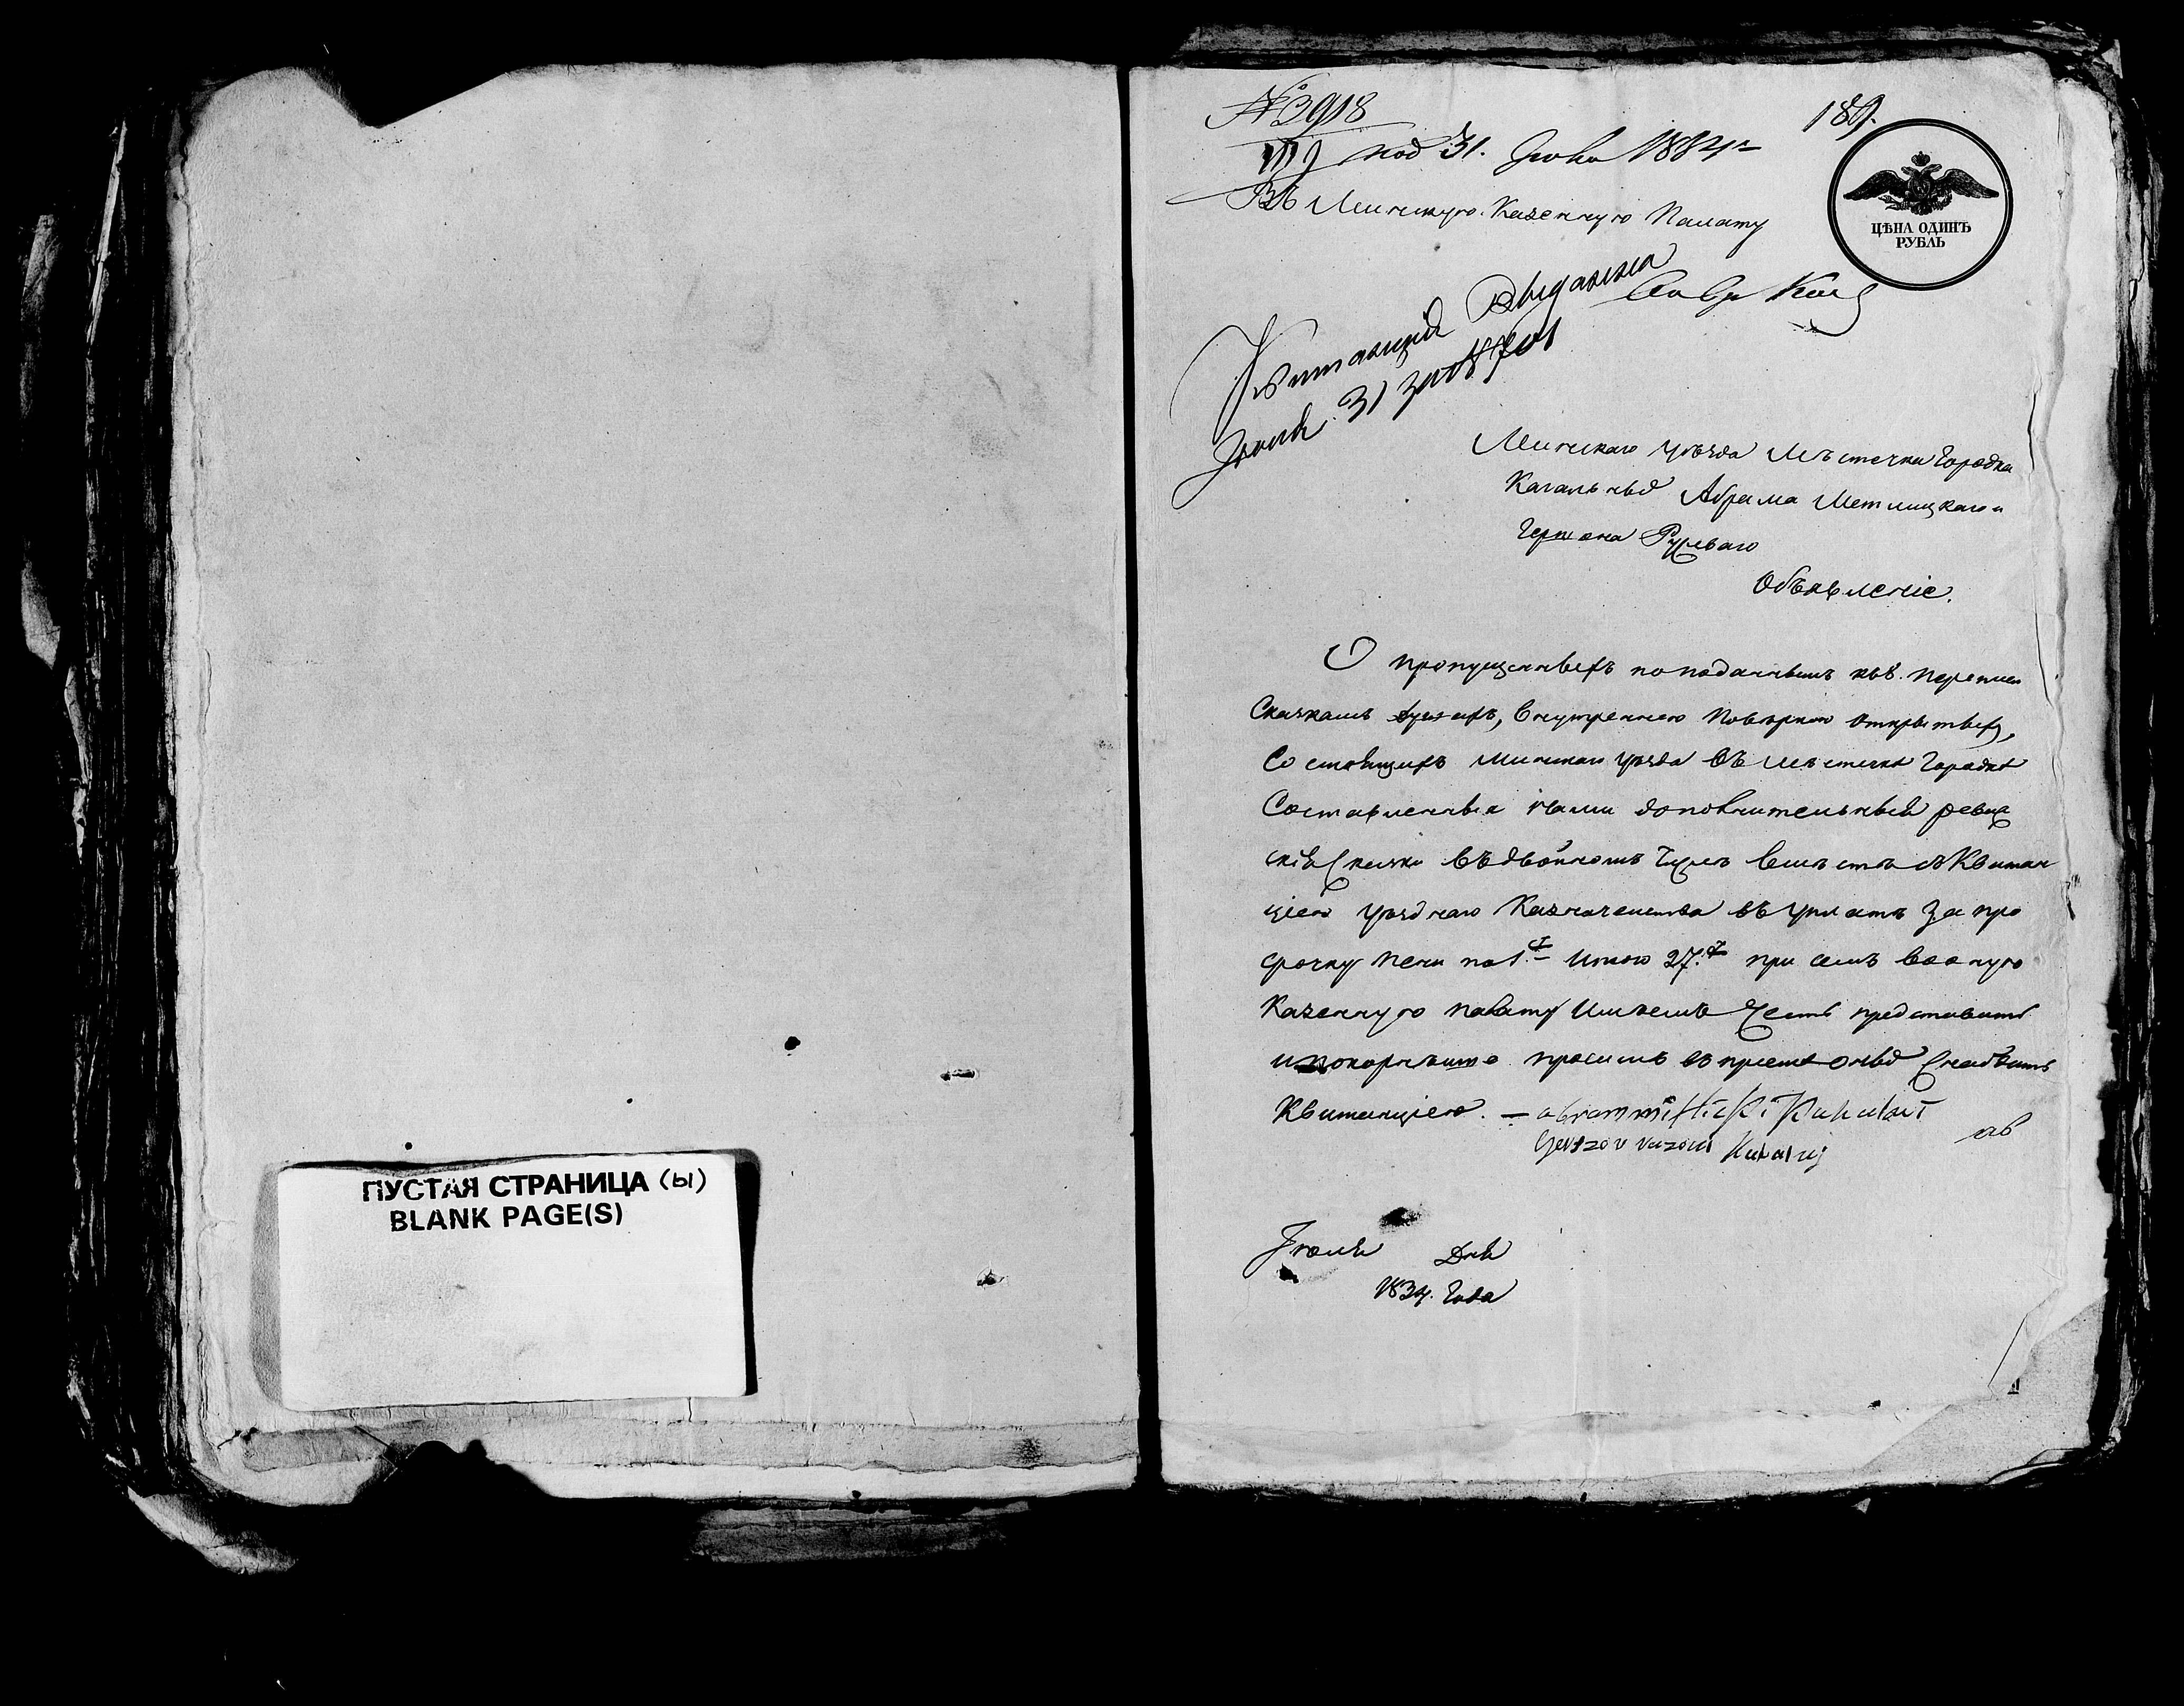 ПУСТАЯ СТРАНИЦА (Ы)
BLANK PAGE(S)
№ 3918
189.
под 31. Іюля 1834 г
ЦѢНА ОДИНЪ
РУБЛЬ
Въ Минскую Казенную Палату
Квитанція Выданна
Іюля 31 за №
Минскаго уѣзда Мѣстечка Городка
Кагальныхъ Абрама Метлицкаго и
Гершона
Объявленіе.
О пропущенныхъ по поданнымъ къ 8. переписи
Сказкамъ душахъ, внутреннею повѣркою открытыхъ,
Состоящихъ Минскаго уѣзда въ мѣстечкѣ Городкѣ
Составленныя нами дополнительныя ревиз
скія Сказки въ двойномъ Числѣ вмѣстѣ съ Квитан
ціею уѣзднаго Казначейства въ уплатѣ за про
срочку пени по 1. итого 27. при семъ во оную
Казенную палату Имѣемъ Честь представить
и покорнѣйше просимъ въ пріемѣ оныхъ Снабдить
Квитанціею. —
Іюля Дня
1834. Года